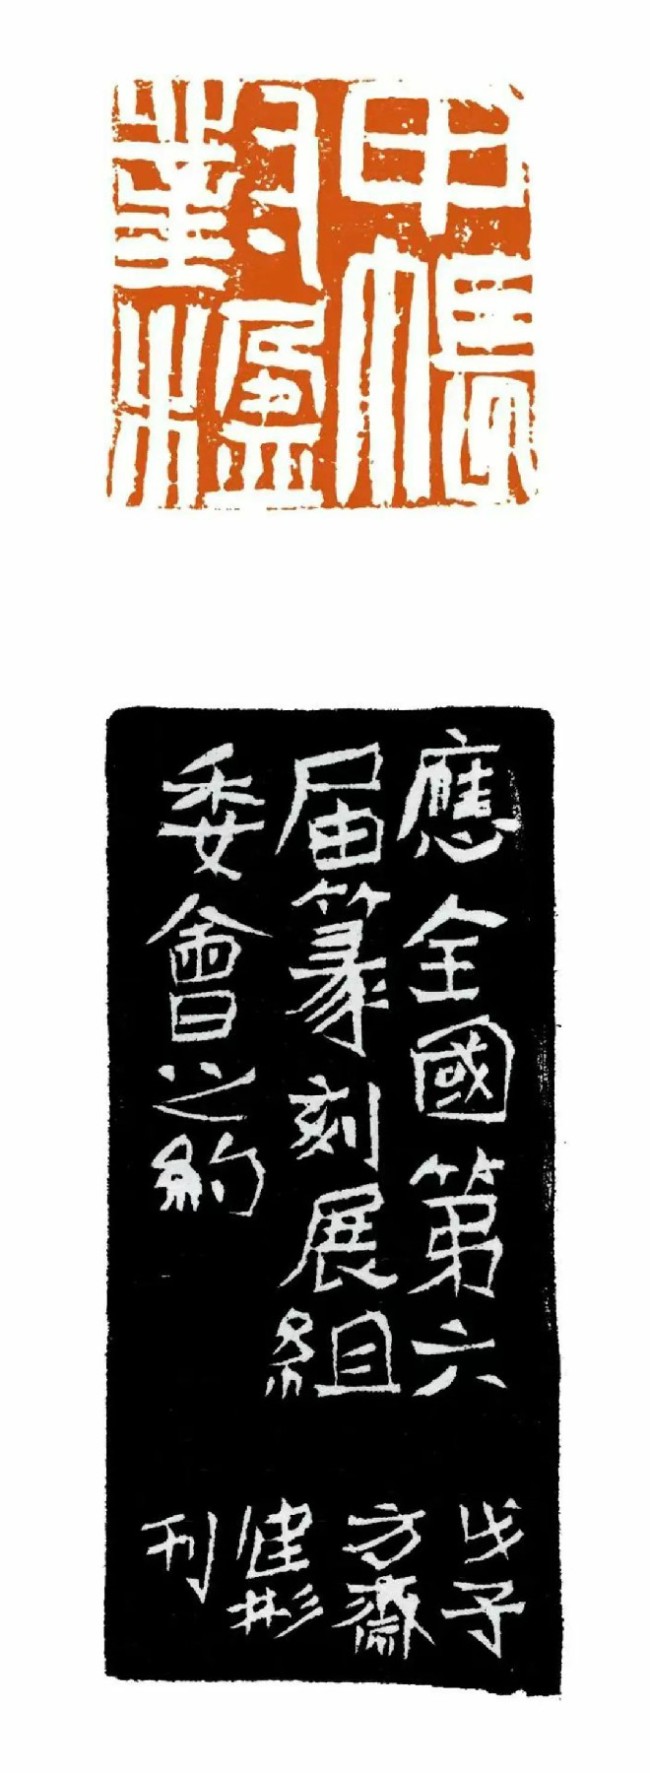 甲帳
對楹
應全國第六
届篆刻展組
委會之約
戊子
方齋
彬
刊